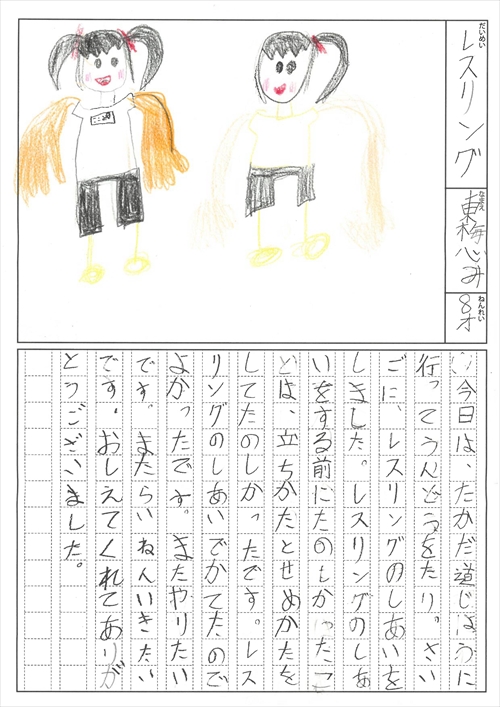 だいめい
レスリング
なまえ
東梅心み
ねんれい
8才
ここみ
今日は、たかだ道じょうに
行ってうんどうをたり。さい
ごに、レスリングのしあいを
しました。レスリングのしあ
いをする前にたのしかったこ
とは、立ちかたとせめかたを
してたのしかったです。レス
リングのしあいでかてたので
よかったです。またやりたい
です。またらいねんいきたい
です。おしえてくれてありが
とうございました。